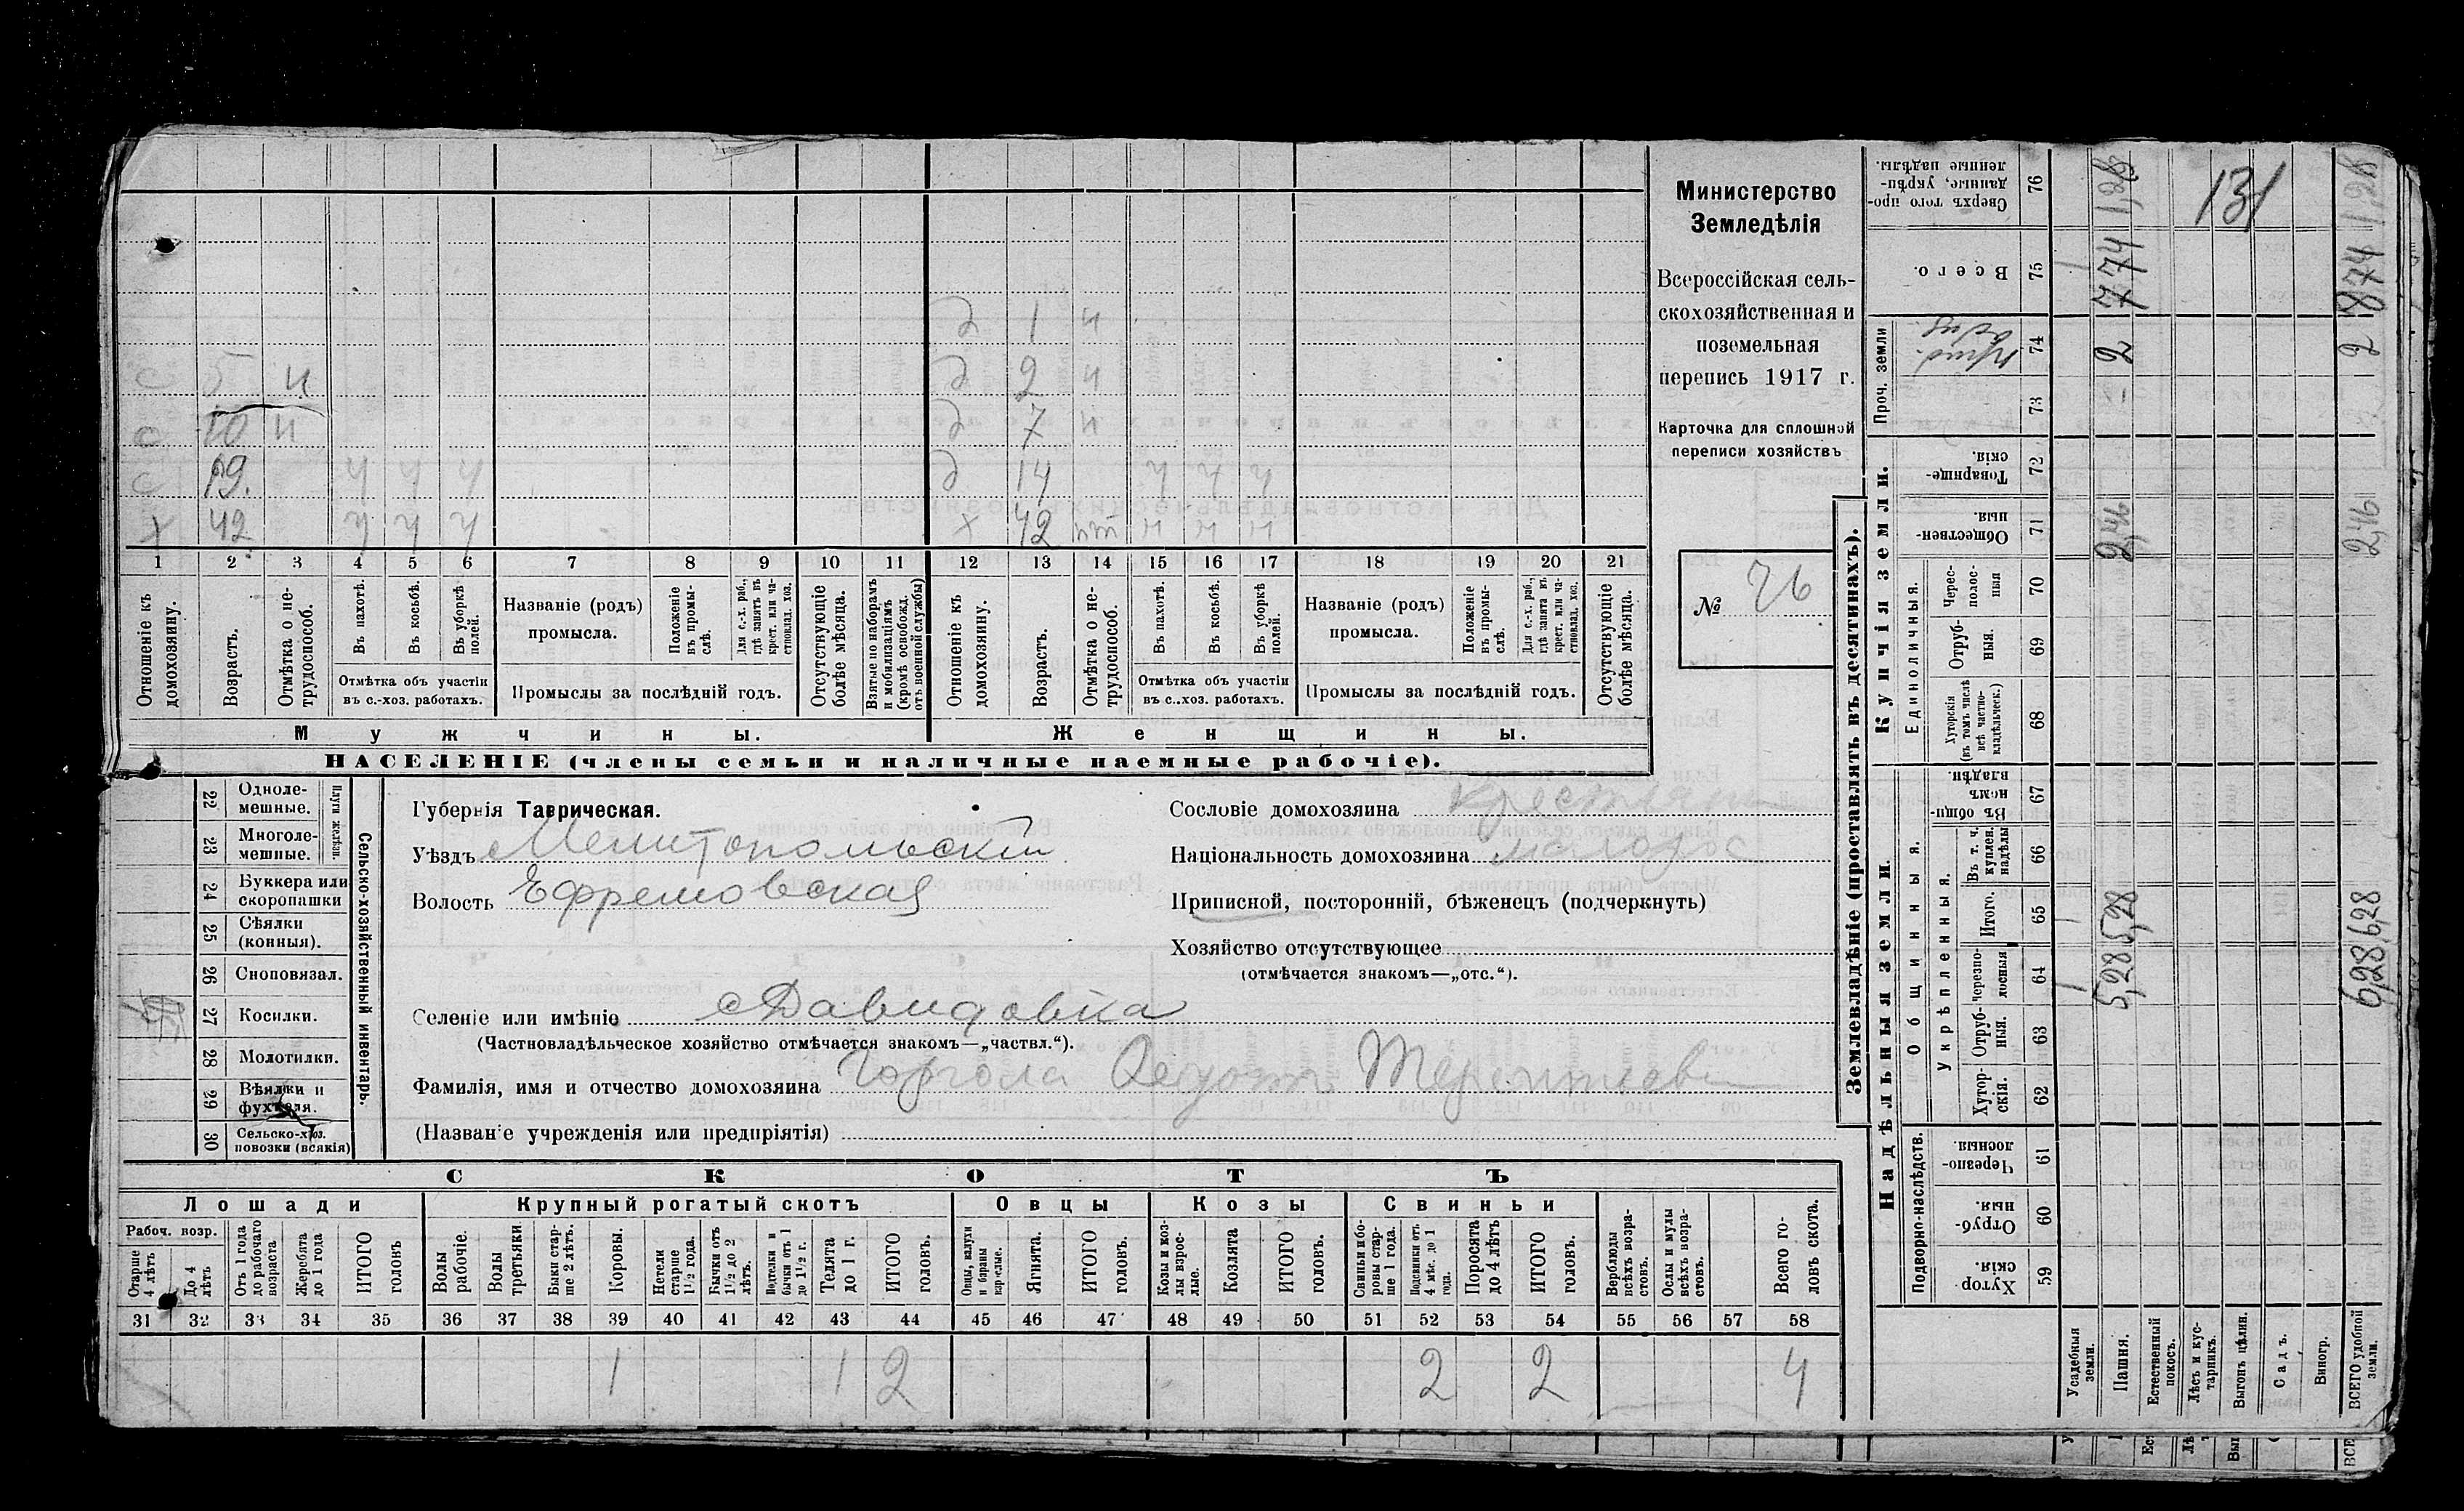 Министерство
Земледѣлія
Всероссійская сель-
скохозяйственная и
поземельная
перепись 1917 г.
Карточка для сплошной
переписи хозяйствъ
№ 76
131
д 1 н
с 5 н д 2 н
с 10 н д 7 н
с 19. у у у д 14 у у у
х 42 у у у х 42 пт н н н
1 2 3 4 5 6 7 8 9 10 11 12 13 14 15 16 17 18 19 20 21
Отношеніе къ домохозяину.
Возрастъ.
Отмѣтка о не-трудоспособ.
Въ пахотѣ.
Въ косьбѣ.
Въ уборкѣ полей.
Отмѣтка объ участіи
въ с.-хоз. работахъ.
Названіе (родъ)
промысла.
Положеніе въ промы-слѣ.
Для с.-х. раб., гдѣ занятъ въ крест. или ча-стновлад. хоз.
Промыслы за послѣдній годъ.
Отсутствующіе болѣе мѣсяца.
Взятые по наборамъ и мобилизаціямъ (кромѣ освобожд. отъ военной службы)
Отношеніе къ домохозяину.
Возрастъ.
Отмѣтка о не-трудоспособ.
Въ пахотѣ.
Въ косьбѣ.
Въ уборкѣ полей.
Отмѣтка объ участіи
въ с.-хоз. работахъ.
Названіе (родъ)
промысла.
Положеніе въ промы-слѣ.
Для с.-х. раб., гдѣ занята въ крест. или ча-стновлад. хоз.
Промыслы за послѣдній годъ.
Отсутствующіе болѣе мѣсяца.
Мужчины. Женщины.
НАСЕЛЕНІЕ (члены семьи и наличные наемные рабочіе).
Сельско-хозяйственный инвентарь.
Плуги желѣзн.
22 Одноле-мешные.
23 Многоле-мешные.
24 Буккера или скоропашки
25 Сѣялки (конныя).
26 Сноповязал.
27 Косилки.
28 Молотилки.
29 Вѣялки и фухтеля.
30 Сельско-хоз. повозки (всякія)
Губернія Таврическая.
Уѣздъ Мелитопольскій
Волость Ефремовская
Сословіе домохозяина крестьянин
Національность домохозяина малорос
Приписной, посторонній, бѣженецъ (подчеркнуть)
Хозяйство отсутствующее
(отмѣчается знакомъ—„отс.“).
Селеніе или имѣніе с Давидовка
(Частновладѣльческое хозяйство отмѣчается знакомъ—„частвл.“).
Фамилія, имя и отчество домохозяина Гаргола Федот Терентиев
(Названіе учрежденія или предпріятія)
СКОТЪ
Лошади Крупный рогатый скотъ Овцы Козы Свиньи
Рабоч. возр.
Старше 4 лѣтъ
До 4 лѣтъ
Отъ 1 года до рабочаго возраста
Жеребята до 1 года
ИТОГО головъ
Волы рабочіе.
Волы третьяки
Быки стар-ше 2 лѣтъ.
Коровы.
Нетели старше 1½ года.
Бычки отъ 1½ до 2 лѣтъ.
Подтелки и бычки отъ 1 до 1½ г.
Телята до 1 г.
ИТОГО головъ.
Овцы, валухи и бараны взрослые.
Ягнята.
ИТОГО головъ.
Козы и коз-лы взрос-лые.
Козлята
ИТОГО головъ.
Свиньи и бо-ровы стар-ше 1 года.
Подсвинки отъ 4 мѣс. до 1 года.
Поросята до 4 лѣтъ
ИТОГО головъ.
Верблюды всѣхъ возра-стовъ.
Ослы и мулы всѣхъ возра-стовъ.
Всего го-ловъ скота.
31 32 33 34 35 36 37 38 39 40 41 42 43 44 45 46 47 48 49 50 51 52 53 54 55 56 57 58
1 1 2 2 2 4
Землевладѣніе (проставлять въ десятинахъ).
Надѣльныя земли.
Подворно-наслѣдств.
Хутор-скія. 59
Отруб-ныя. 60
Черезпо-лосныя. 61
Общинныя.
Укрѣпленныя.
Хутор-скія. 62
Отруб-ныя. 63
черезпо-лосныя 64
Итого. 65
Въ т. ч. куплен. надѣлы 66
Въ общин-номъ владѣн. 67
Купчія земли.
Единоличныя.
Хуторскія (въ томъ числѣ всѣ частно-владѣльческ.) 68
Отруб-ныя. 69
Черес-полос-ныя 70
Обществен-ныя 71
Товарище-скія. 72
Проч. земли
73
74
Всего. 75
Сверхъ того про-данные, укрѣп-ленные надѣлы. 76
Усадебныя земли.
Пашня. 5,28 5,28 2,46 2 7,74 1,28
Естественный покосъ.
Лѣсъ и кус-тарникъ.
Выгонъ цѣлин.
Садъ.
Виногр.
ВСЕГО удобной земли. 6,28 6,28 2,46 2 8,74 1,28